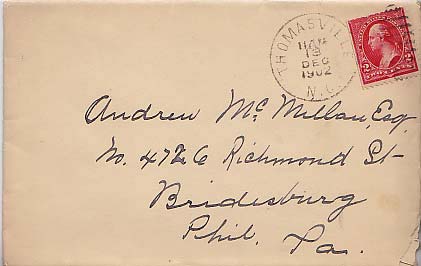 THOMASVILLE
DEC
1902
N.C.
2 2
Andrew Mc Millan, Esq.
No. 4726 Richmond St
Bridesburg
Phil. Pa.